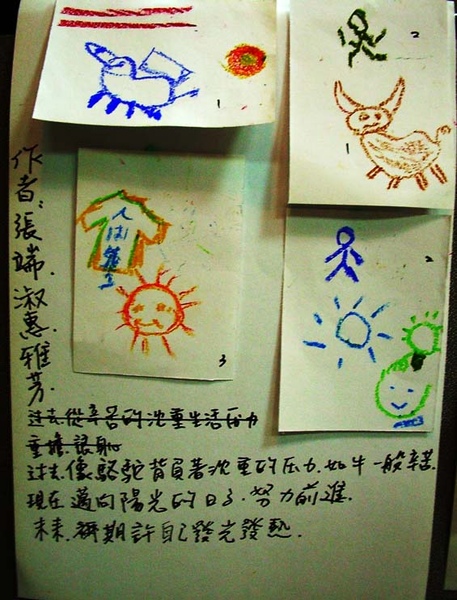 1
2
1
人間
3
2
作者:張端.淑惠.雅芳.
过去從辛苦的沈重生活压力
重擔
过去.像駱駝背負著沈重的压力.如牛一般辛苦.
現在邁向陽光的日子.努力前進.
未来.期許自己發光發熱.